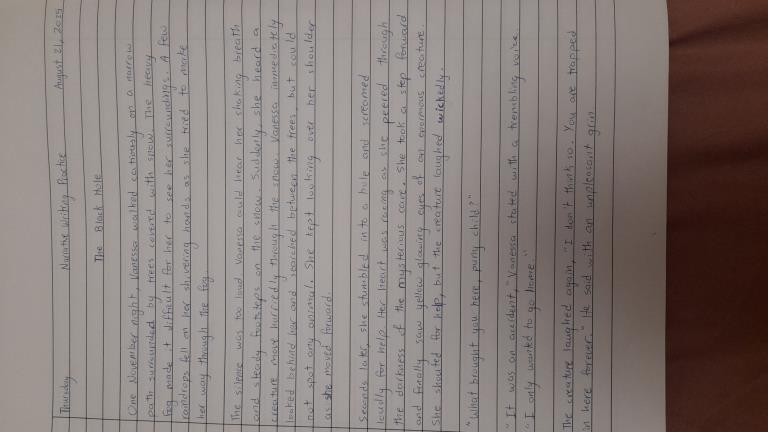 Thursday Narrative Writing Practice August 21, 2025
The Black Hole
One November night, Vanessa walked cautiously on a narrow
path surrounded by trees covered with snow. The heavy
fog made it difficult for her to see her surroundings. A few
raindrops fell on her shivering hands as she tried to make
her way through the fog.
The silence was too loud. Vanessa could hear her shaking breath
and steady footsteps on the snow. Suddenly, she heard a
creature move hurriedly through the snow. Vanessa immediately
looked behind her and searched between the trees, but could
not spot any animal. She kept looking over her shoulder
as she moved forward.
Seconds later, she stumbled into a hole and screamed
loudly for help. Her heart was racing as she peered through
the darkness of the mysterious cave. She took a step forward
and finally saw yellow glowing eyes of an enormous creature.
She shouted for help, but the creature laughed wickedly.
"What brought you here, puny child?"
"It was an accident," Vanessa stated with a trembling voice.
"I only wanted to go home."
The creature laughed again, "I don't think so. You are trapped
in here forever." He said with an unpleasant grin.